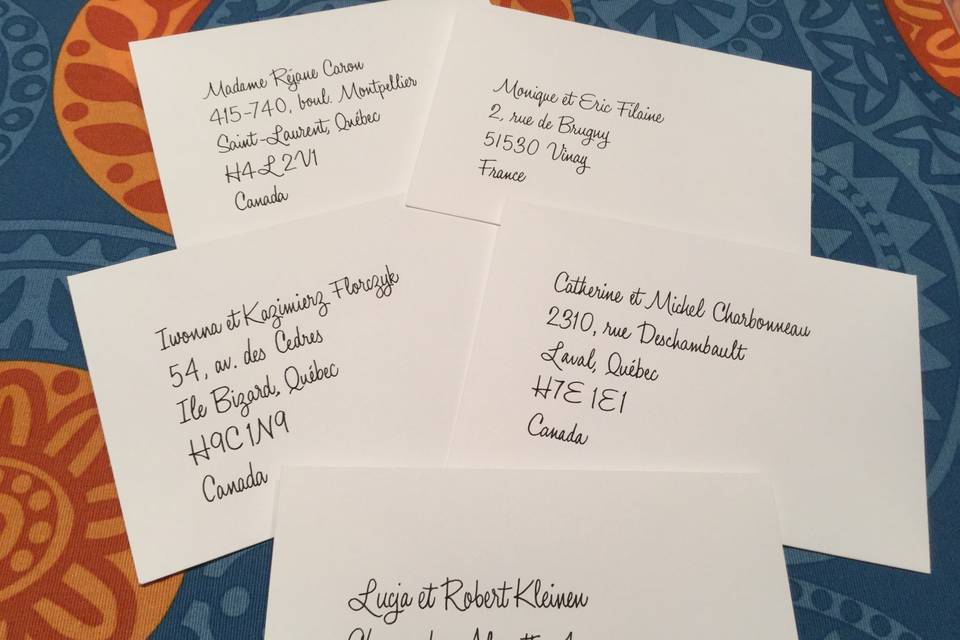 Madame Réjane Caron
415-740, boul. Montpellier
Saint-Laurent, Québec
H4L2V1
Canada
Monique et Eric Filaine
2, rue de Brugny
51530 Vinay
France
Iwonna et Kazimierz Florczyk
54, av. des Cedres
Ile Bizard, Québec
H9C1N9
Canada
Catherine et Michel Charbonneau
2310, rue Deschambault
Laval, Québec
H7E 1E1
Canada
Lucja et Robert Kleinen